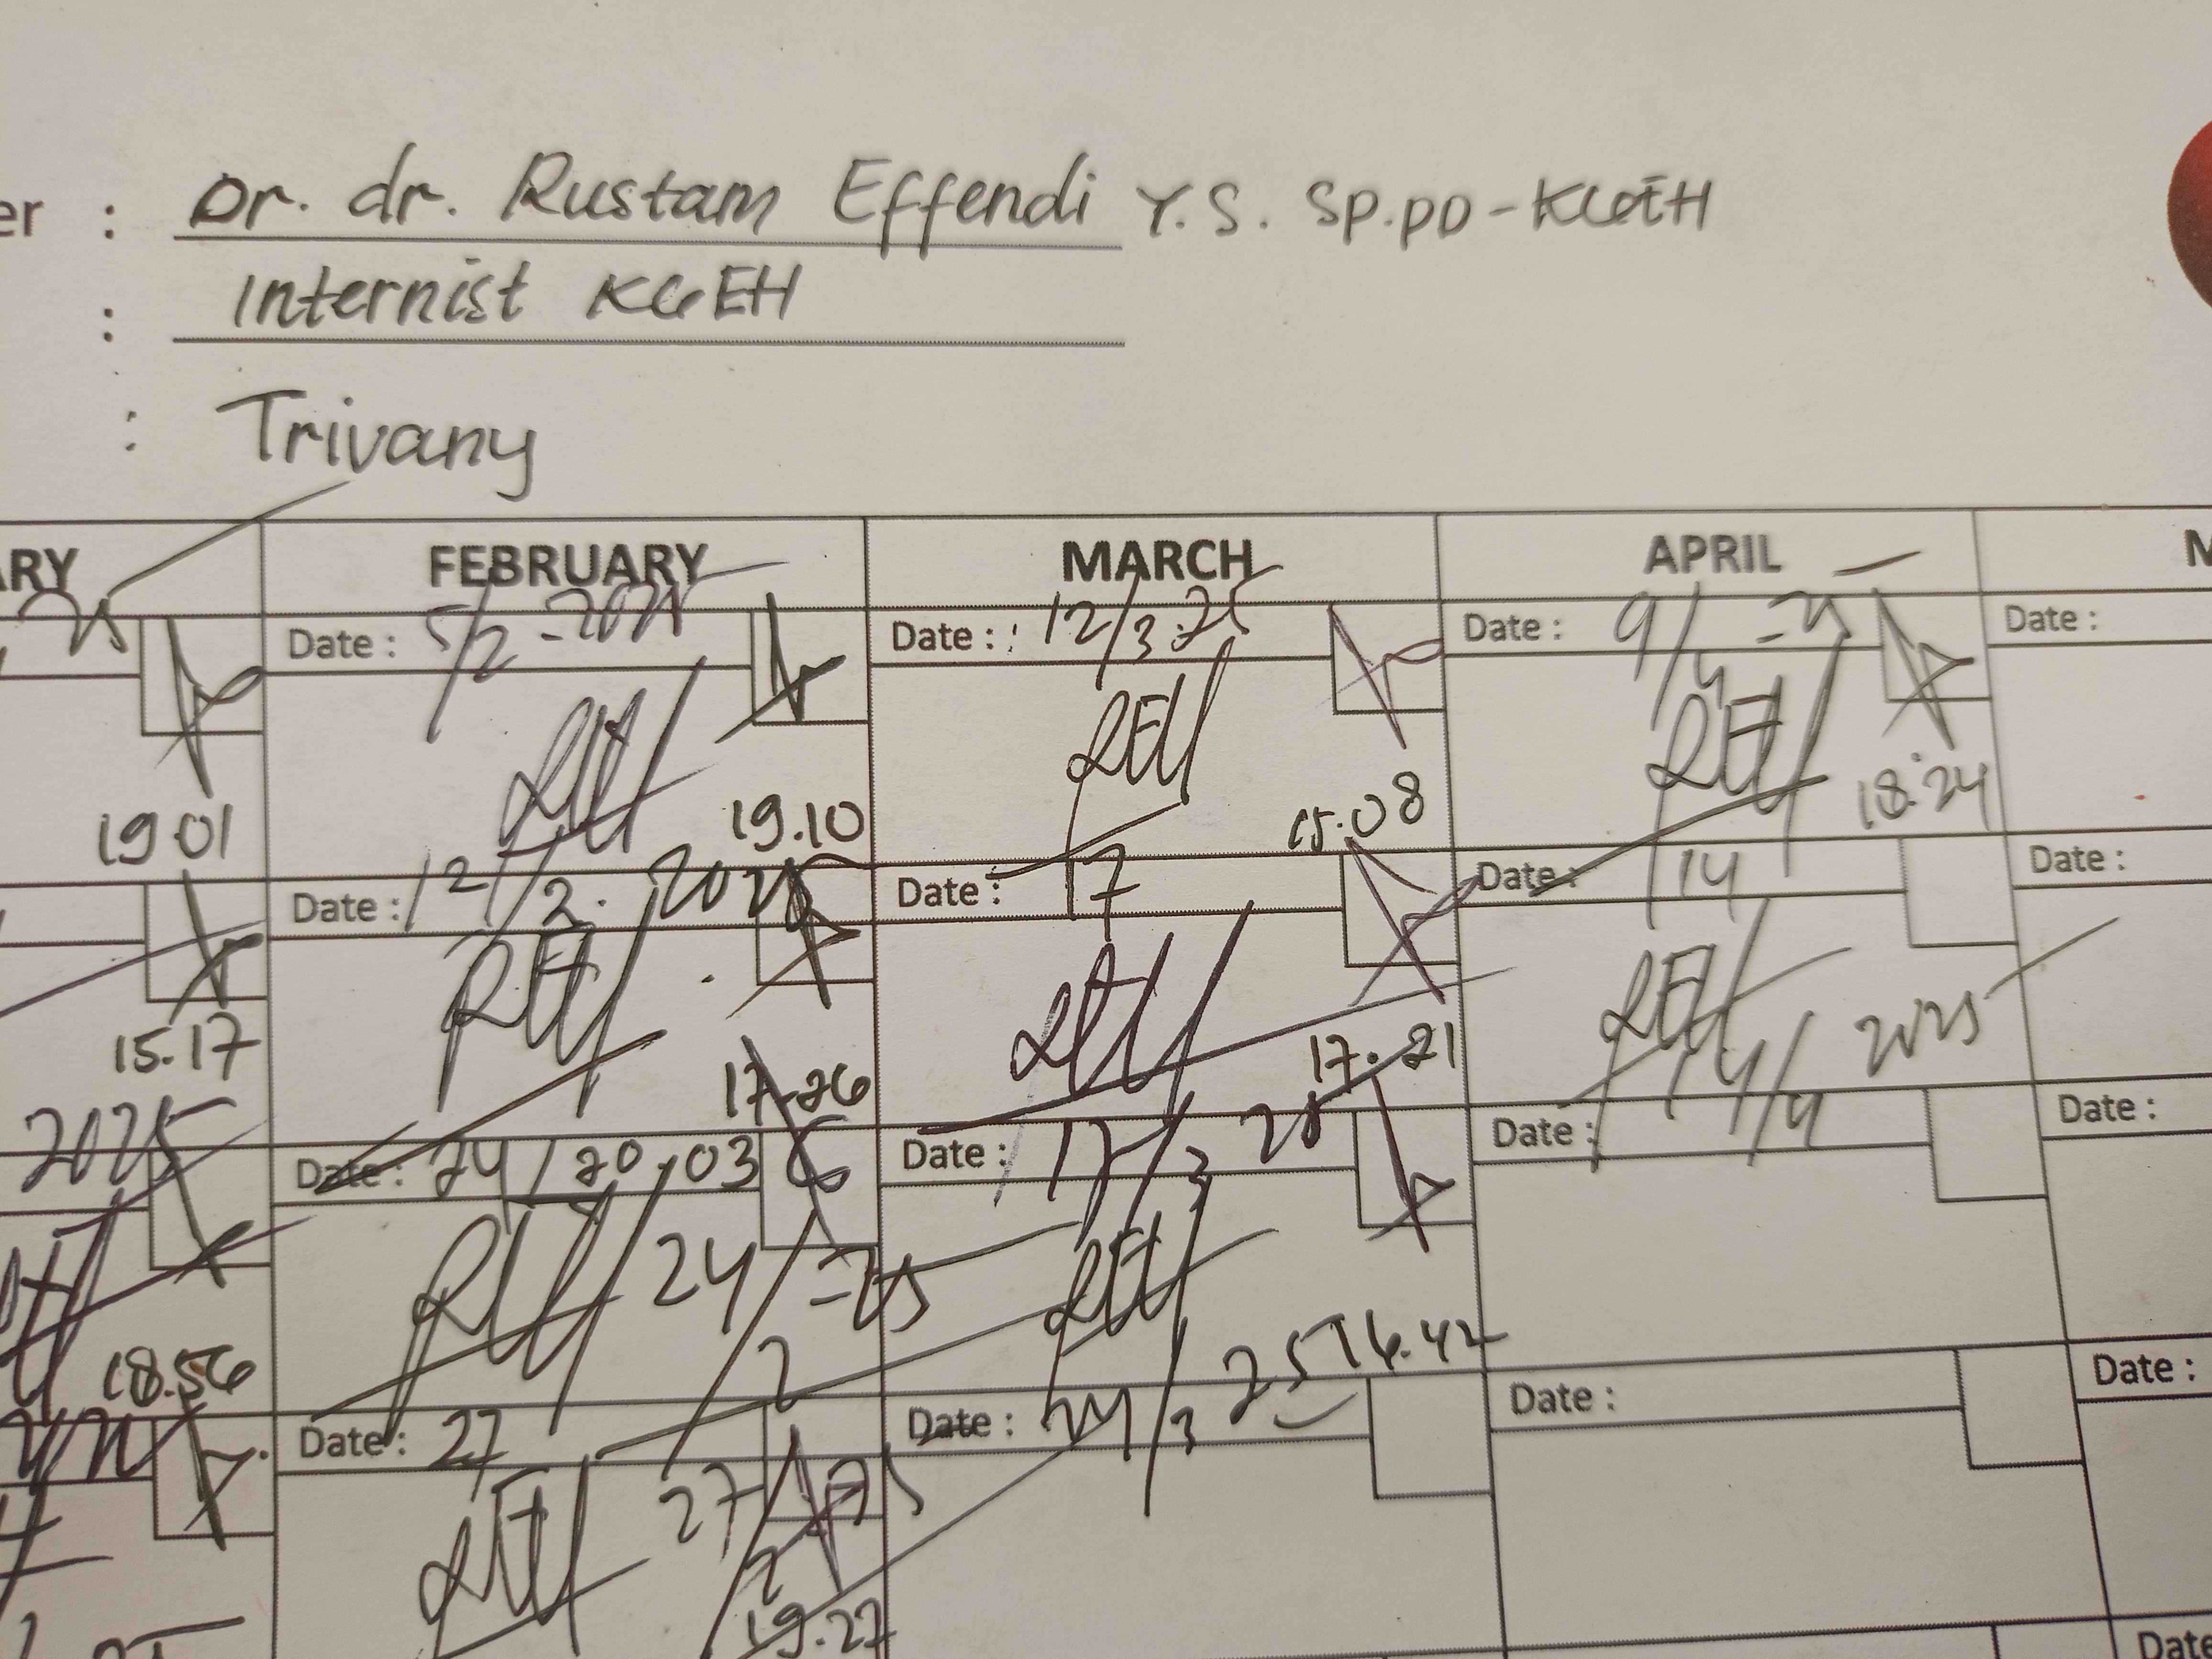 er : Dr. dr. Rustam Effendi Y.S. Sp.PD-KGEH
: Internist KGEH
: Trivany
ARY FEBRUARY MARCH APRIL M
Date : 5/2 - 2025 Date : 12/3.25 Date : 9/4 - 25 Date :
19 01 19.10 15.08 18.24
Date : 12/2. 2025 Date : 17 Date : 14 Date :
15.17 17.26 17.21 14/4 2025
2025 Date : 24/20.03 Date : 17/3 25 Date : Date :
24/2 - 25
18.56 16.42
Date : 27 Date : 24/3 25 Date : Date :
27/2 25
19.27
Date